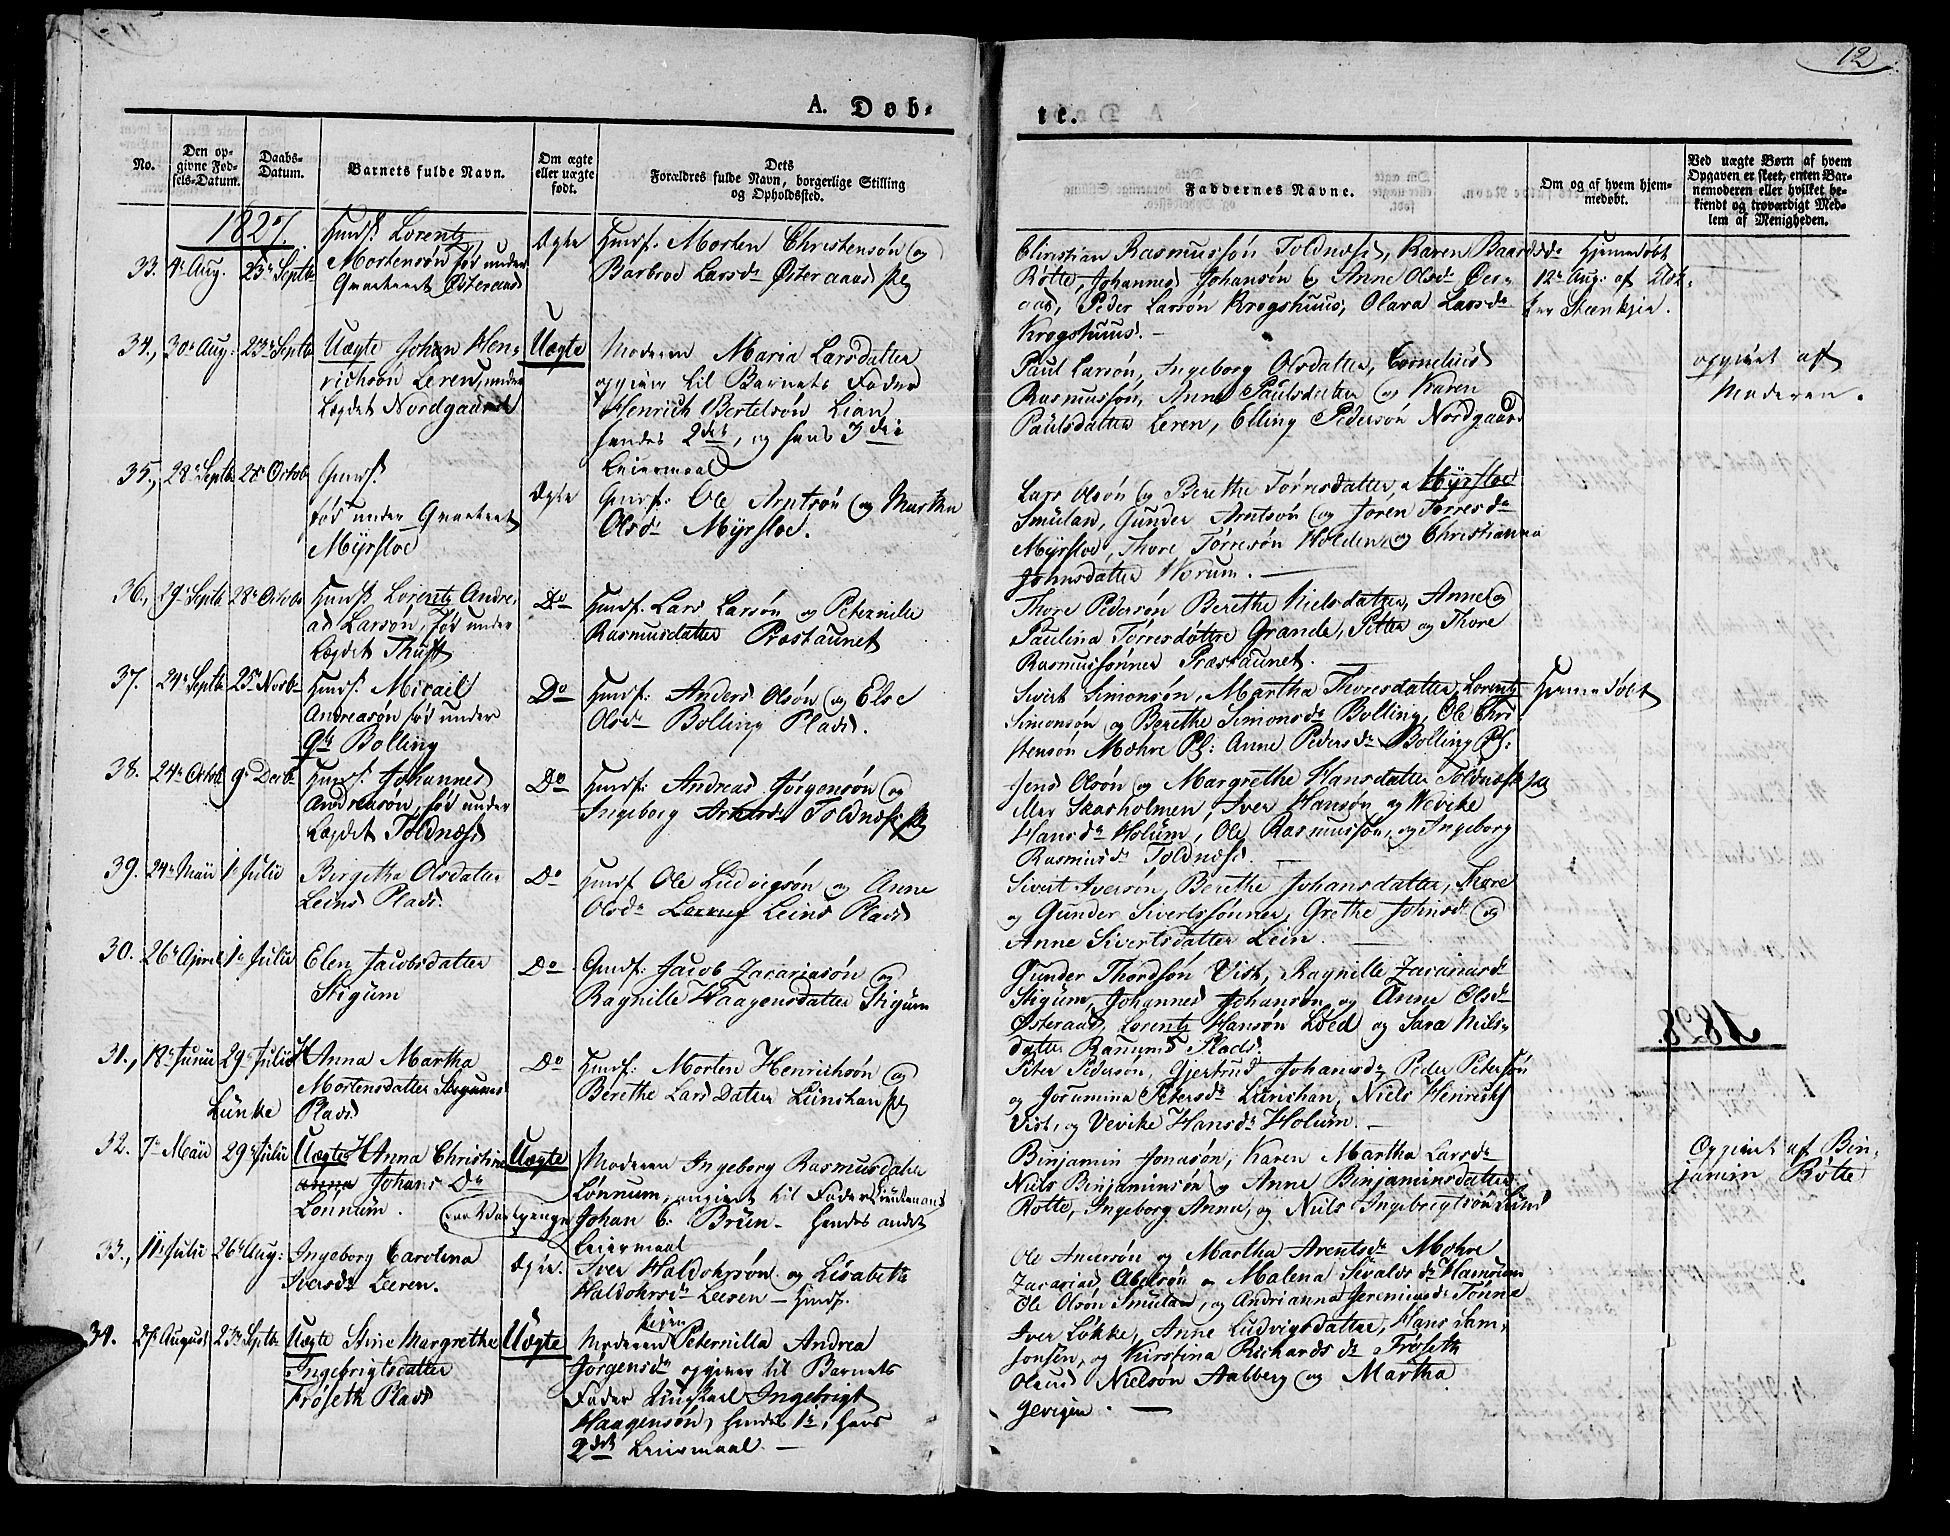 12
A. Døb-
te.
No.
Den op-
givne Fød-
sels-Datum.
Daabs-
Datum.
Barnets fulde Navn.
Om ægte
eller uægte
født.
Dets
Forældres fulde Navn, borgerlige Stilling
og Opholdssted.
Faddernes Navne.
Om og af hvem hjem-
medøbt.
Ved uægte Børn af hvem
Opgaven er skeet, enten Bar-
nemoderen eller hvilket be-
kiendt og troværdigt Med-
lem af Menigheden.
1827
33. 4de Aug. 23de Septbr
Lorentz
Mortensøn fød under
Qvarteret Østeraas
Ægte
Huusf. Morten Christensøn og
Barbroe Larsdr Østeraas
Christian Rasmussøn Toldnæss, Karen Baardsdr
Røtte, Johannes Johansøn og Anne Olsdr Øster-
aas, Peder Larsøn Krogshuus, Olava Larsdr
Krogshuus.
Hjemmedøbt
12te Aug: af
Steenkjer.
34., 30te Aug: 23de Septbr
Uægte Johan Hen-
richsøn Leren, under
Lægdet Nordgaards
Uægte
Moderen Maria Larsdatter
opgiver til Barnets Fader
Henrich Bertelsøn Lian
hendes 2det, og hans 3die
Leiermaal
Paul Larsøn, Ingeborg Olsdatter, Cornelius
Rasmussøn, Anne Paulsdatter og Karen
Paulsdatter Leren, Elling Pedersøn Nordgaard
opgivet af
Moderen.
35., 28de Septbr 28de Octob
fød under Qvarteret
Myrsloe
Ægte
Huusf: Ole Arntsøn og Marthe
Olsdr Myrsloe.
Lars Olsøn og Berethe Torresdatter, Myrsloe
Smulan, Gunder Arntsøn og Joren Torresdr
Myrsloe, Thore Tørresøn Holden og Christianna
Johnsdatter Worum.
36., 29de Septbr 28de Octob
Lorentz Andre-
as Larsøn, fød under
Lægdet Thuft
Do
Huusf. Lars Larsøn og Peternille
Rasmusdatter Præstaunet
Thore Pedersøn Berethe Nielsdatter, Anne og
Paulina Tørresdøttre Grande, Petter og Thore
Rasmussønner Præstaunet.
37. 24de Septbr 25de Novbr
Micail
Andreasøn fød under
Bolling
Do
Huusf: Anders Olsøn og Else
Olsdr Bolling Plads.
Sivert Simonsøn, Martha Thoresdatter, Lorentz
Simonsøn og Berethe Simonsdr Bolling, Ole Chri-
stensøn Mohre Pl: Anne Pedersdr Bolling Pl:
Hjemmedøbt
38. 24de Octob 9de Decbr
Johannes
Andreasøn, fød under
Lægdet Toldnæss
Do
Huusf: Andreas Jørgensøn og
Ingeborg Arntsdr Toldnæss
Jens Olsøn og Margrethe Hansdatter Toldnæss
Skarholmen, Iver Hansøn og Wevike
Hansdr Holum, Ole Rasmussøn, og Ingeborg
Rasmusdr Toldnæss.
39. 24de Maii 1te Julii
Birgetha Olsdatter
Leins Plads.
Do
Huusf Ole Ludvigsøn og Anne
Olsdr Leins Plads
Sivert Iversøn, Berethe Johansdatter, Thore
og Gunder Sivertssønner, Grethe Johnsdr og
Anne Sivertsdatter Lein.
30. 26de April 1te Julii
Elen Jacobsdatter
Stigum
Do
Huusf: Jacob Zacariasøn og
Ragnille Haagensdatter Stigum
Gunder Thordsøn Vist, Ragnille Zacariasdr
Stigum, Johannes Johansøn og Anne Olsdr
Østeraas, Lorentz Hansøn Loed og Sara Niels-
datter Ranums Plads.
31., 18de Junii 29de Julii
Anna Martha
Mortensdatter Stigums
Plads
Lünke
Do
Huusf: Morten Henrichsøn og
Berethe Lars Datter Lünshan
Peter Pedersøn, Gjertrud Johansdr Peder Petersøn
og Josamina Petersdr Lünshan, Niels Henrichs
Vist, og Vevike Hansdr Holum.
32. 7de Maii 29de Julii
Uægte Anna Christine
Anna Johans Dr
Lønnum.
Uægte
Moderen Ingeborg Rasmusdatter
Lønnum, angivet til Fader
Johan C. Brün hendes andet
Leiermaal
Binjamin Jonasøn, Karen Martha Larsdr
Niels Binjaminsøn og Anne Binjaminsdatter
Rotte, Ingeborg Anna, og Niels Ingebrigtsøn
Opgivet af Bin-
jamin Røtte
33., 11te Julii 26de Aug:
Ingeborg Carolina
Iversdr Leeren.
Ægte.
Iver Haldohrsøn og Lisabeth
Haldohrsdr Leeren — Huusf.
Ole Andersøn og Martha Arentsdr Mohre
Zacarias Abelsøn og Malena Sivaldsdr
Ole Olsøn Smulan, og Andrianna Jeremiasdr
34. August 23de Septbr
Uægte Stine Margrethe
Ingebrigtsdatter
Frøseth Plads
Uægte
Pigen
Moderen Peternilla Andrea
Jørgensdr opgiver til Barnets
Fader Ungkarl Ingebrigt
Haagensøn, hendes 1te, hans
2det Leiermaal.
Iver Løkke, Anne Ludvigsdatter, Hans Sam-
sonsen, og Kirstina Richardsdr Frøseth
Nielsøn Aalberg og Martha
Gevigen.
1828.